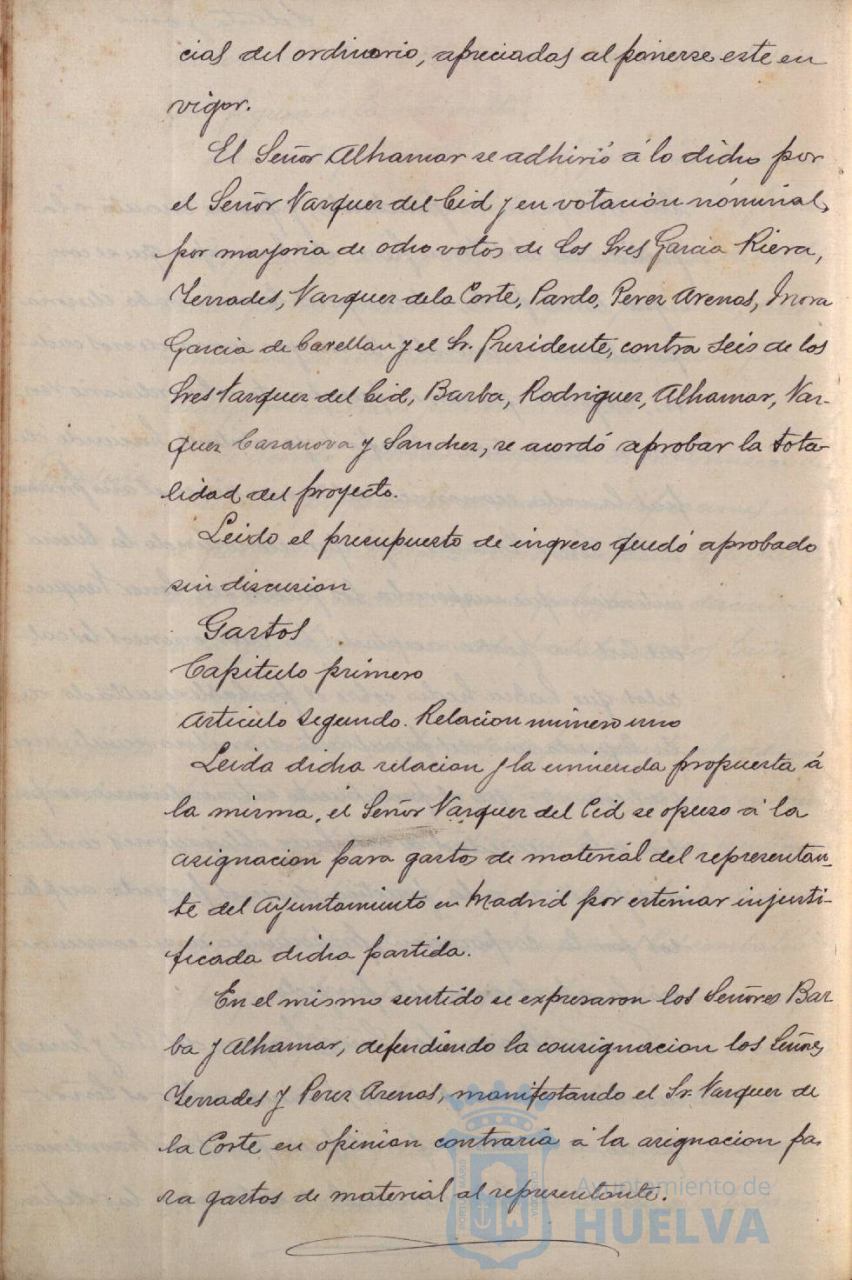 cias del ordinario, apreciadas al ponerse este en
vigor.
El Señor Alhamar se adhirió á lo dicho por
el Señor Vazquez del Cid y en votacion nóminal,
por mayoria de ocho votos de los Sres Garcia Riera,
Terrades, Vazquez dela Corte, Pardo, Perez Arenas, Mora
Garcia de Cavellan y el Sr. Presidente, contra seis de los
Sres Vazquez del Cid, Barba, Rodriguez, Alhamar, Vaz-
quez Casanova y Sanchez, se acordó aprobar la tota-
lidad del proyecto.
Leido el presupuesto de ingreso quedó aprobado
sin discusion
Gastos
Capitulo primero
Articulo segundo. Relacion número uno
Leida dicha relacion y la enmienda propuesta á
la misma, el Señor Vazquez del Cid se opuso á la
asignacion para gastos de material del representan-
te del Ayuntamiento en Madrid por estimar injusti-
ficada dicha partida.
En el mismo sentido se expresaron los Señores Bar
ba y Alhamar, defendiendo la consignacion los Señores
Terrades y Perez Arenas, manifestando el Sr. Vazquez de
la Corte en opinion contraria á la asignacion pa-
ra gastos de material al representante.
Ayuntamiento de
HUELVA